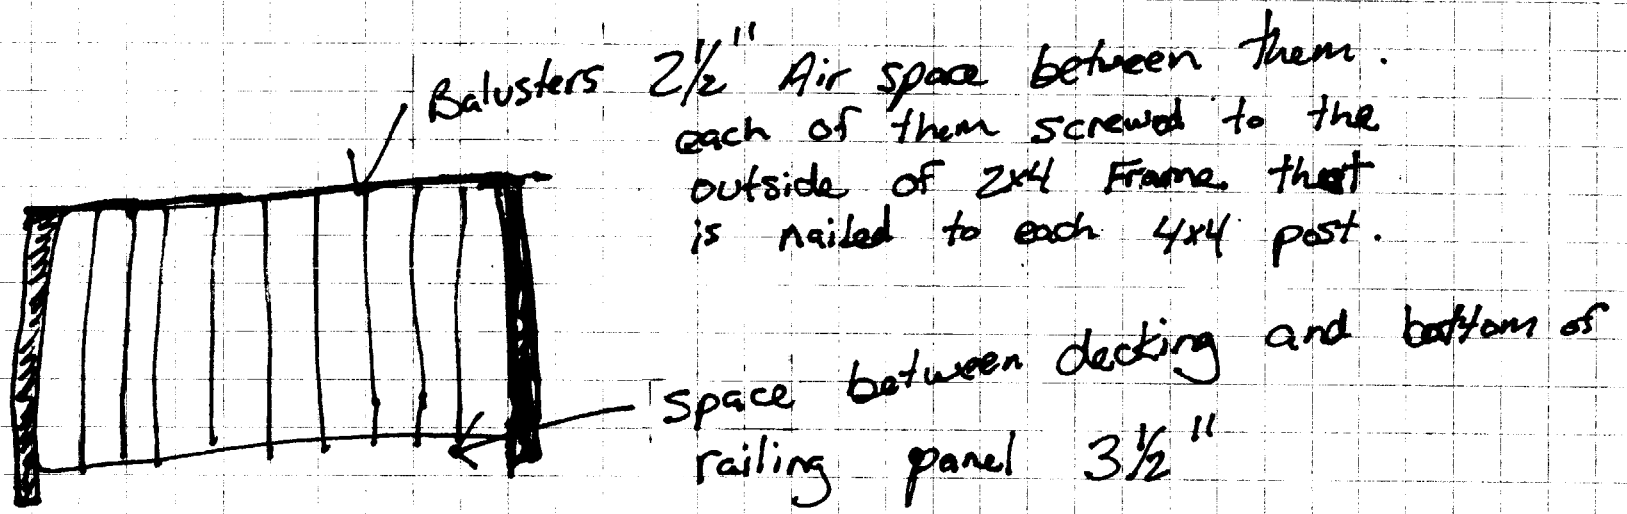 Balusters 2½" Air space between them.
each of them screwed to the
outside of 2x4 Frame that
is nailed to each 4x4 post.
space between decking and bottom of
railing panel 3½"